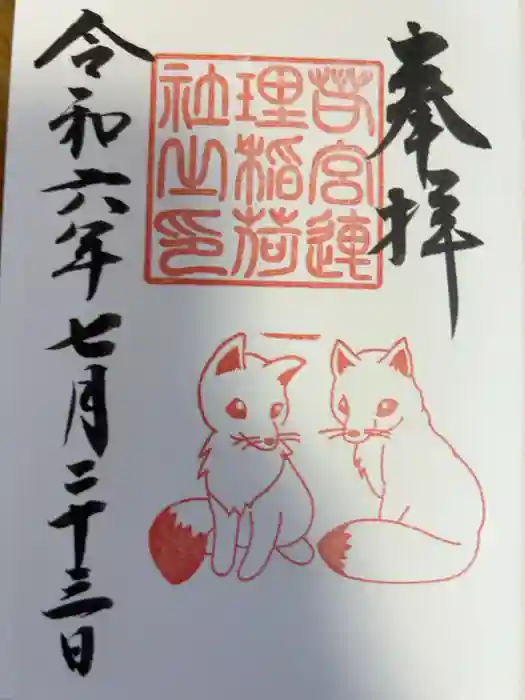 奉拝
苔宮連
理稲荷
社之印
令和六年七月二十三日